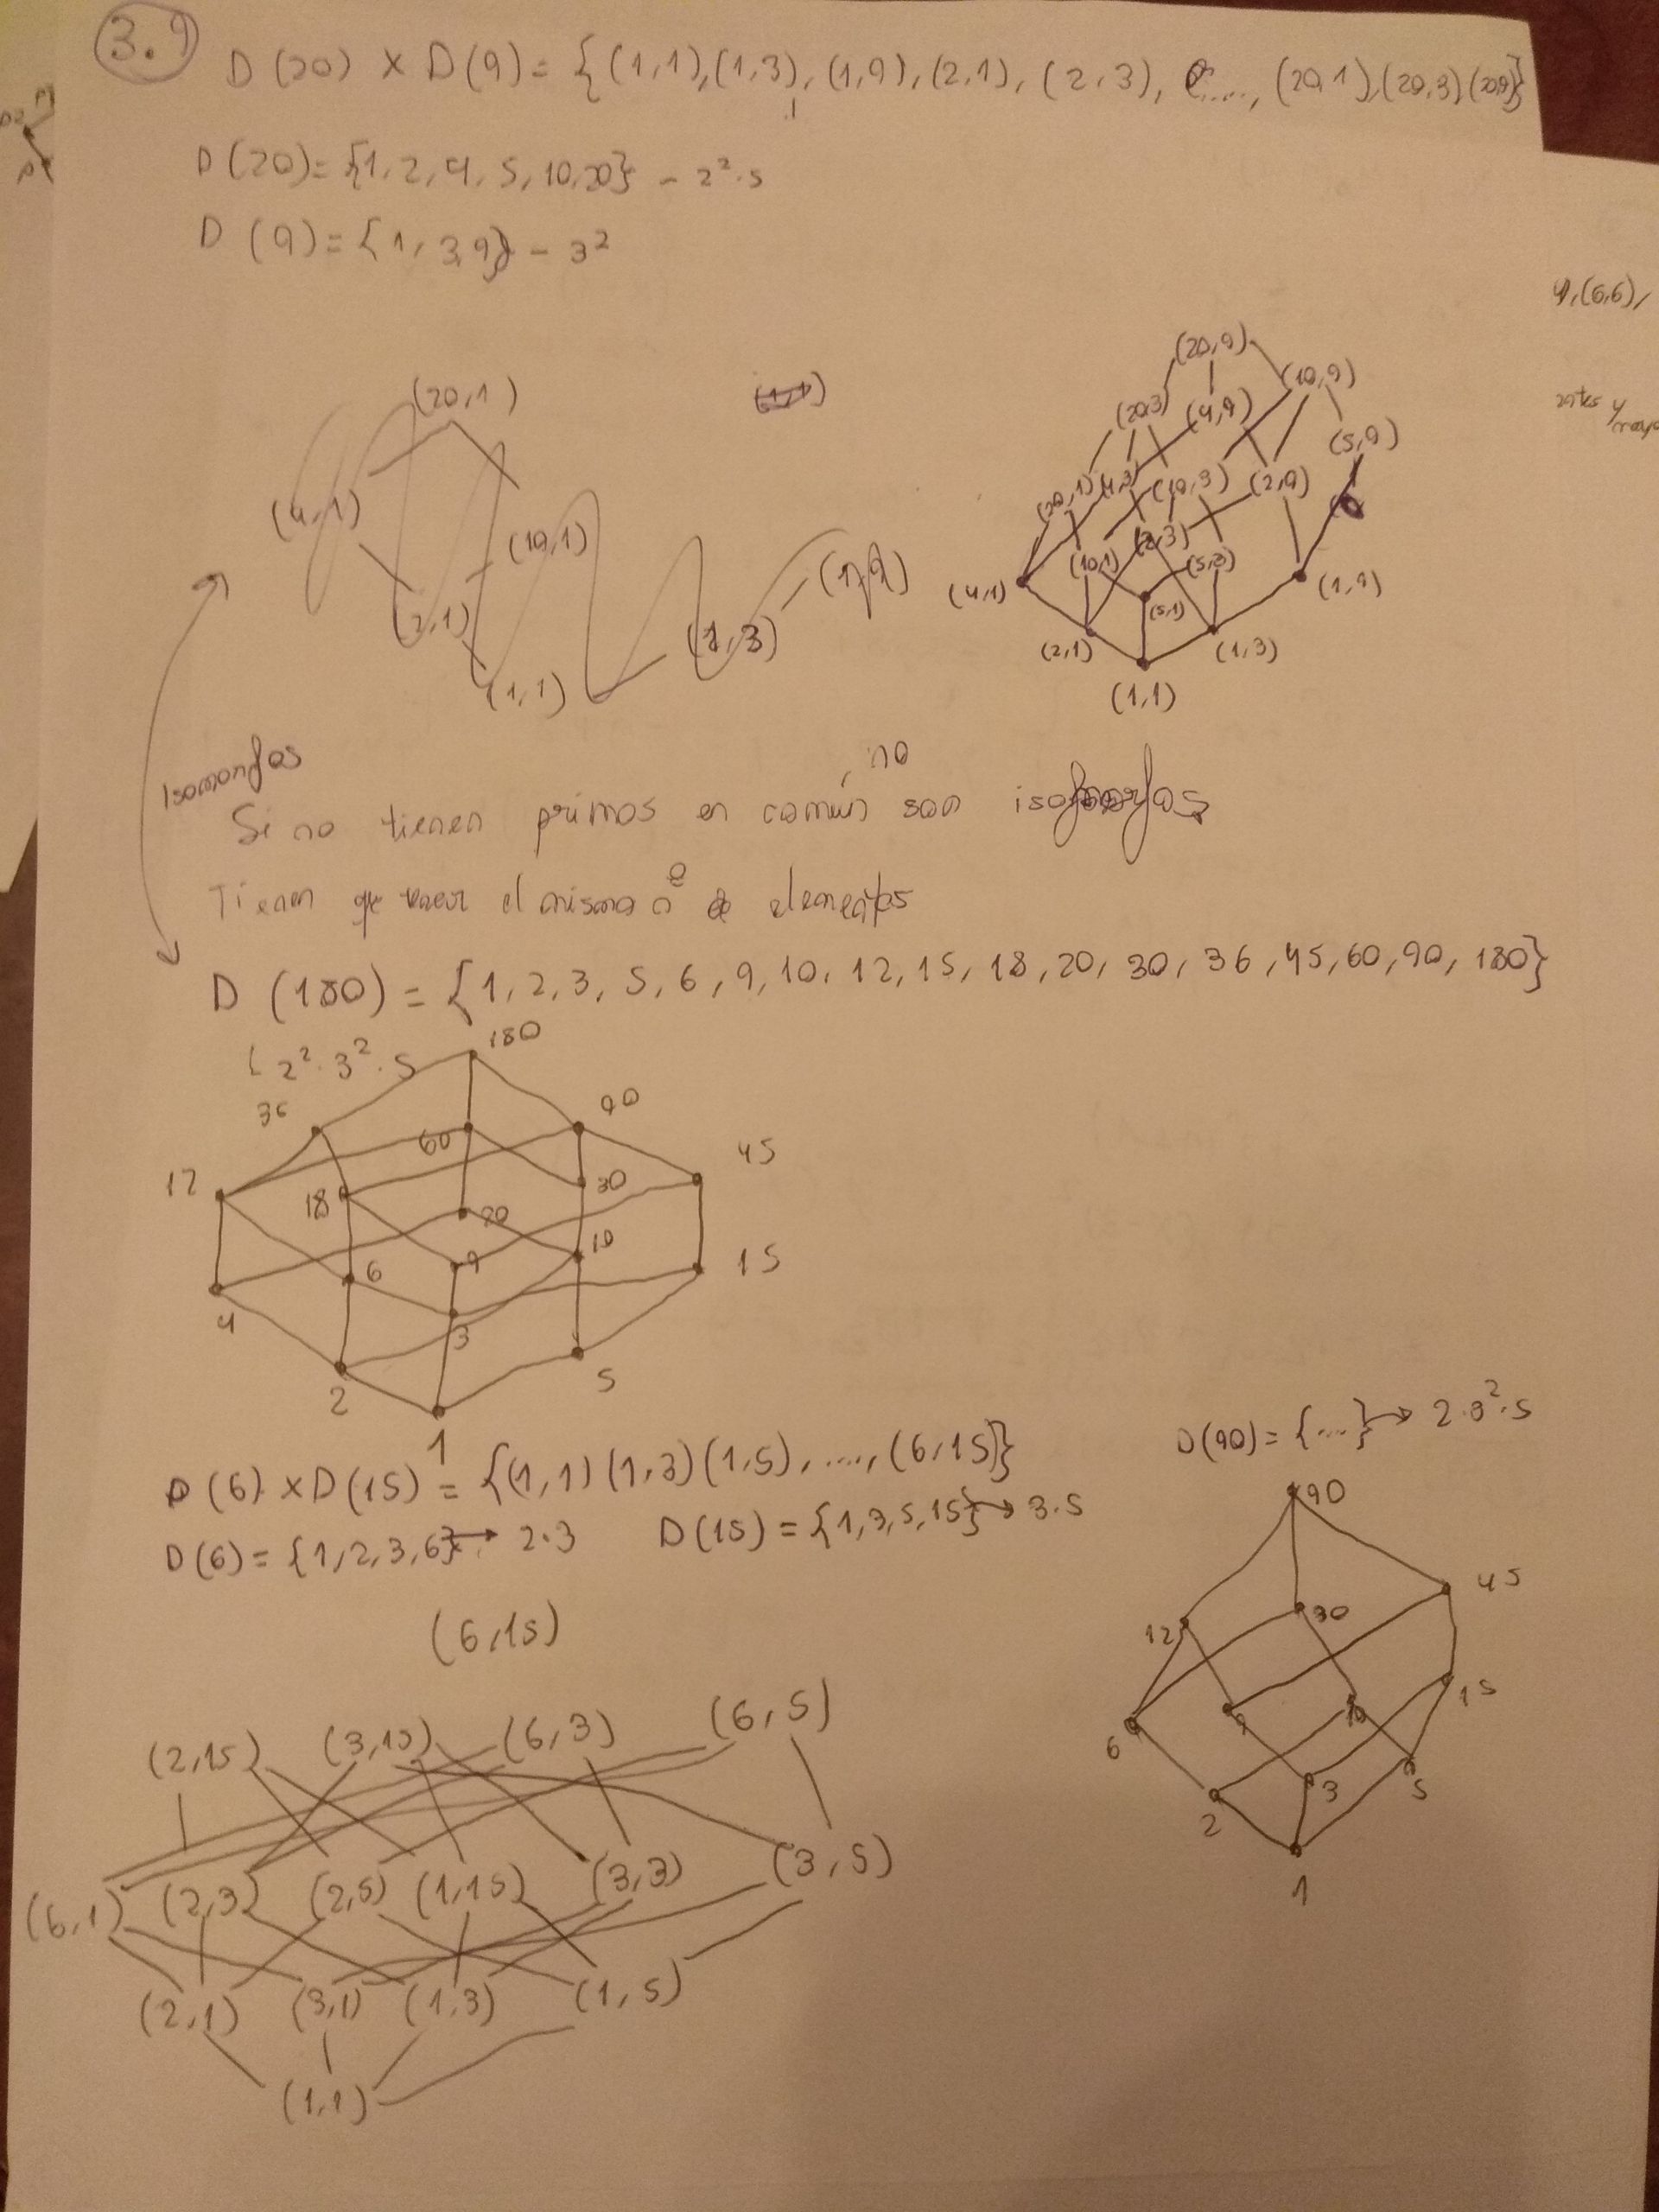 3.9
D(20) × D(9) = {(1,1),(1,3),(1,9),(2,1),(2,3), ...., (20,1),(20,3)(20,9)}
D(20)= {1,2,4,5,10,20} - 2²·5
D(9)={1,3,9} - 3²
4,(6,6),
(20,1)
(4,1)
(10,1)
(2,1)
(1,1)
(1,3)
(1,9)
(20,9)
(10,9)
(20,3) (4,9)
(5,9)
(20,1) (4,3) (10,3) (2,9)
(2,3)
(4,1) (10,1) (5,3) (1,9)
(5,1)
(2,1) (1,3)
(1,1)
Isomorfos
no
Si no tienen primos en común son isomorfos
Tienen que tener el mismo nº de elementos
D(180) = {1,2,3,5,6,9,10,12,15,18,20,30,36,45,60,90,180}
2²·3²·5
180
36 60 90
12 18 30 45
20
4 6 9 10 15
3
2 5
1
D(6) × D(15) = {(1,1)(1,3)(1,5),....,(6,15)}
D(6)={1,2,3,6} → 2·3 D(15)={1,3,5,15} → 3·5
(6,15)
(2,15) (3,15) (6,3) (6,5)
(6,1) (2,3) (2,5) (1,15) (3,3) (3,5)
(2,1) (3,1) (1,3) (1,5)
(1,1)
D(90)={...} → 2·3²·5
90
45
12 30
6 9 10 15
2 3 5
1